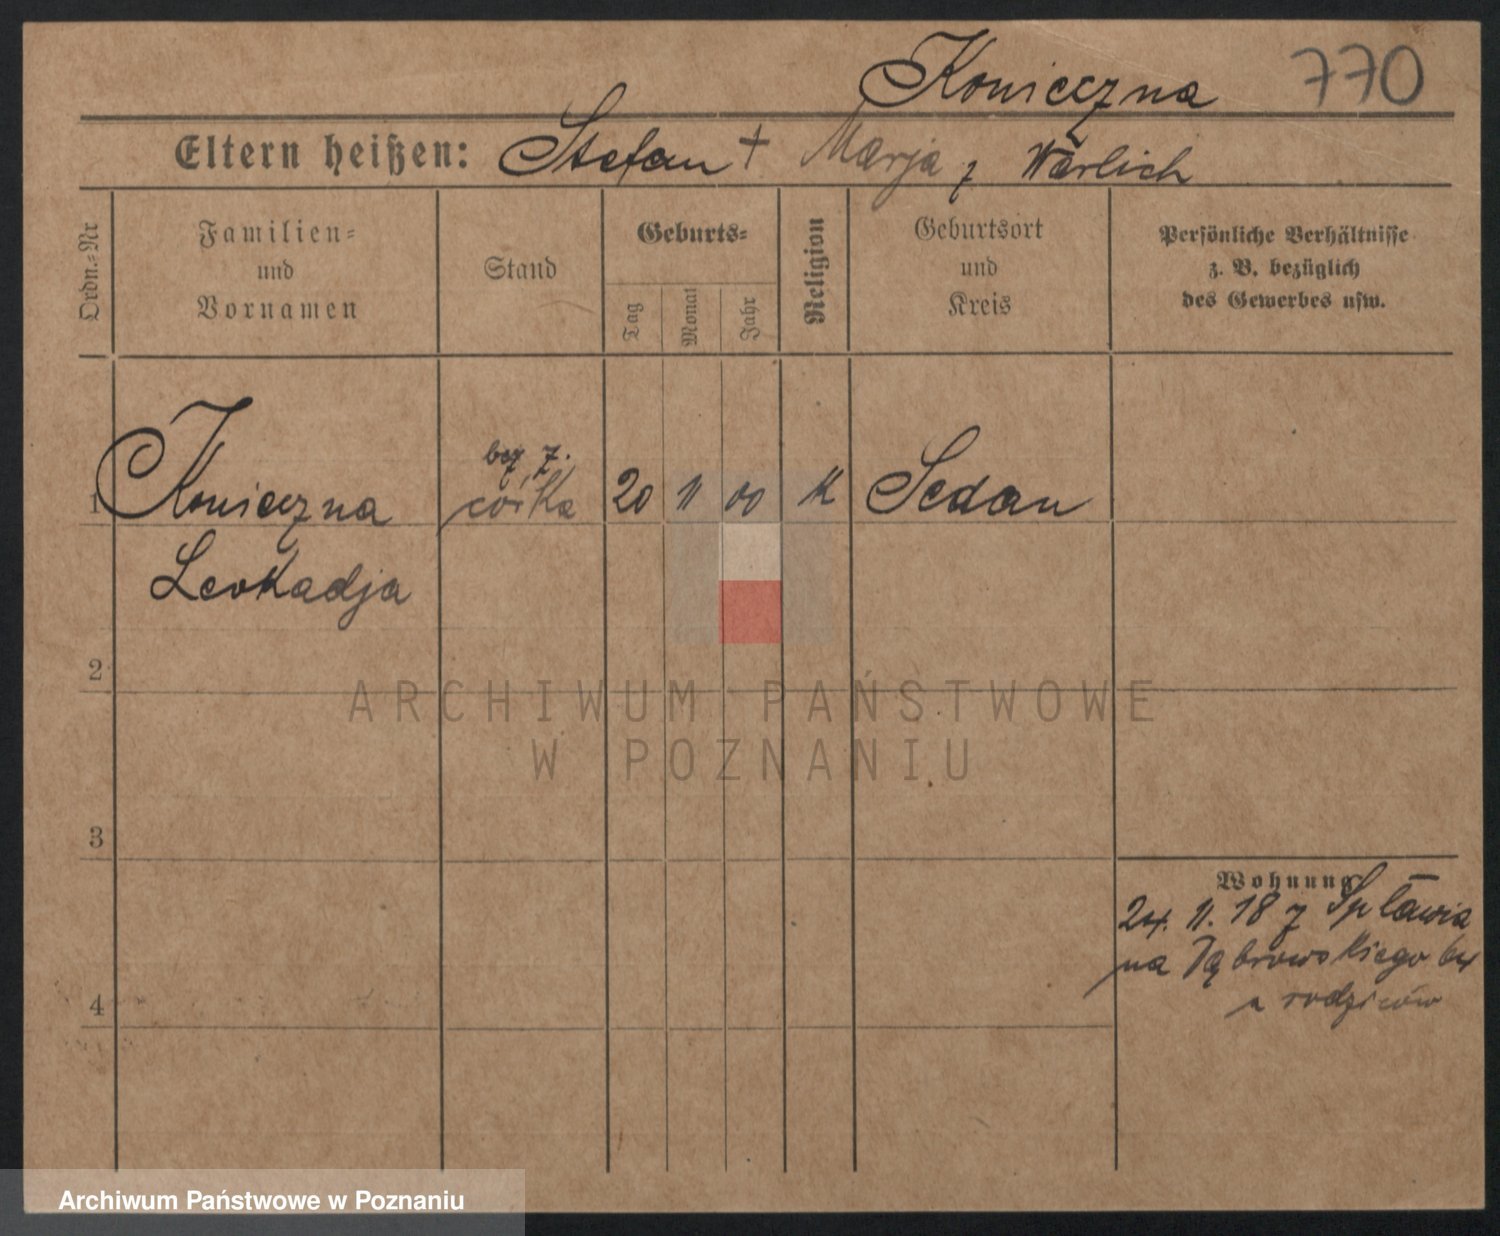 Konieczna 770
Eltern heißen: Stefan + Marja z Wärlich
Ordn.-Nr
Familien-
und
Vornamen
Stand
Geburts-
Tag
Monat
Jahr
Religion
Geburtsort
und
Kreis
Persönliche Verhältnisse
z. B. bezüglich
des Gewerbes usw.
bez z.
1 Konieczna córka 20 11 00 K Sedan
Leokadja
2
3
4
Wohnung
24. 11. 18 z Spławia
na Dąbrowskiego 64
rodziców
ARCHIWUM PAŃSTWOWE
W POZNANIU
Archiwum Państwowe w Poznaniu